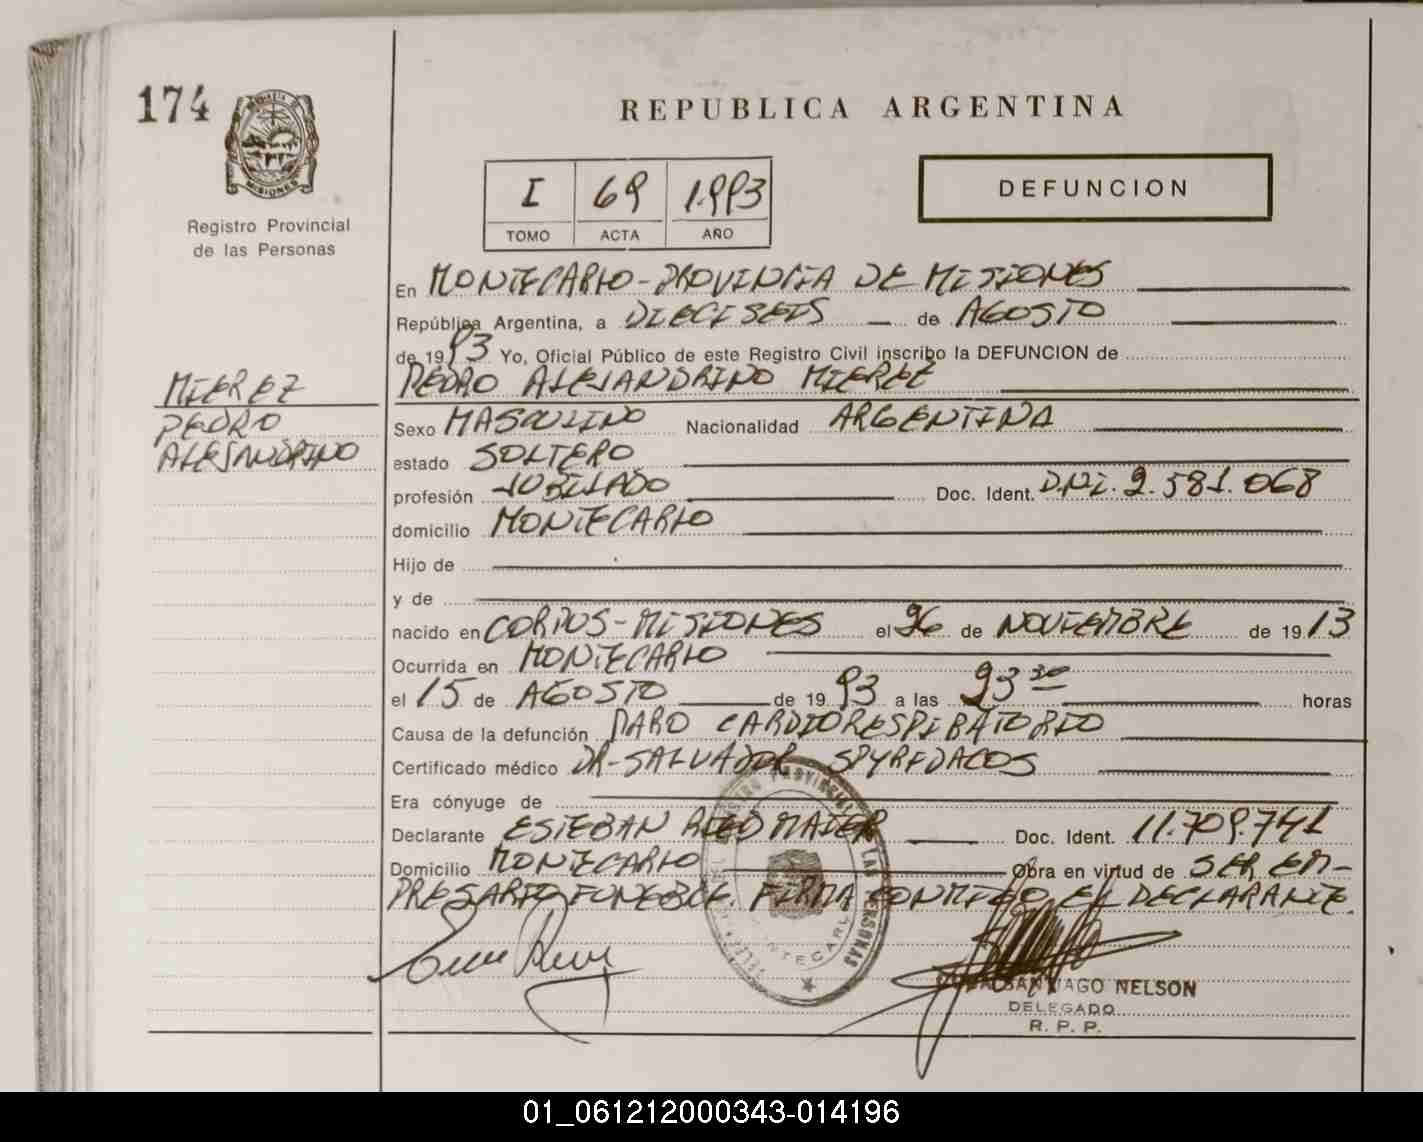 174
REPUBLICA ARGENTINA
PROVINCIA DE
MISIONES
Registro Provincial
de las Personas
I 69 1.993
TOMO ACTA AÑO
DEFUNCION
En MONTECARLO-PROVINCIA DE MISIONES
República Argentina, a DIECISEIS de AGOSTO
de 1993 Yo, Oficial Público de este Registro Civil inscribo la DEFUNCION de
PEDRO ALEJANDRINO MIEREZ
MIEREZ
PEDRO
ALEJANDRINO
Sexo MASCULINO Nacionalidad ARGENTINA
estado SOLTERO
profesión JUBILADO Doc. Ident. D.N.I. 2.581.068
domicilio MONTECARLO
Hijo de
y de
nacido en CORPUS-MISIONES el 26 de NOVIEMBRE de 1913
Ocurrida en MONTECARLO
el 15 de AGOSTO de 1993 a las 23 30 horas
Causa de la defunción PARO CARDIORESPIRATORIO
Certificado médico DR-SALVADOR SPYREDACOS
Era cónyuge de
Declarante ESTEBAN RIEDMAIER Doc. Ident. 11.709.741
Domicilio MONTECARLO Obra en virtud de SER EM-
PRESARIO FUNEBRE. FIRMA CONMIGO EL DECLARANTE.
REGISTRO PROVINCIAL DE LAS PERSONAS
MONTECARLO
SANTIAGO NELSON
DELEGADO
R. P. P.
01_061212000343-014196